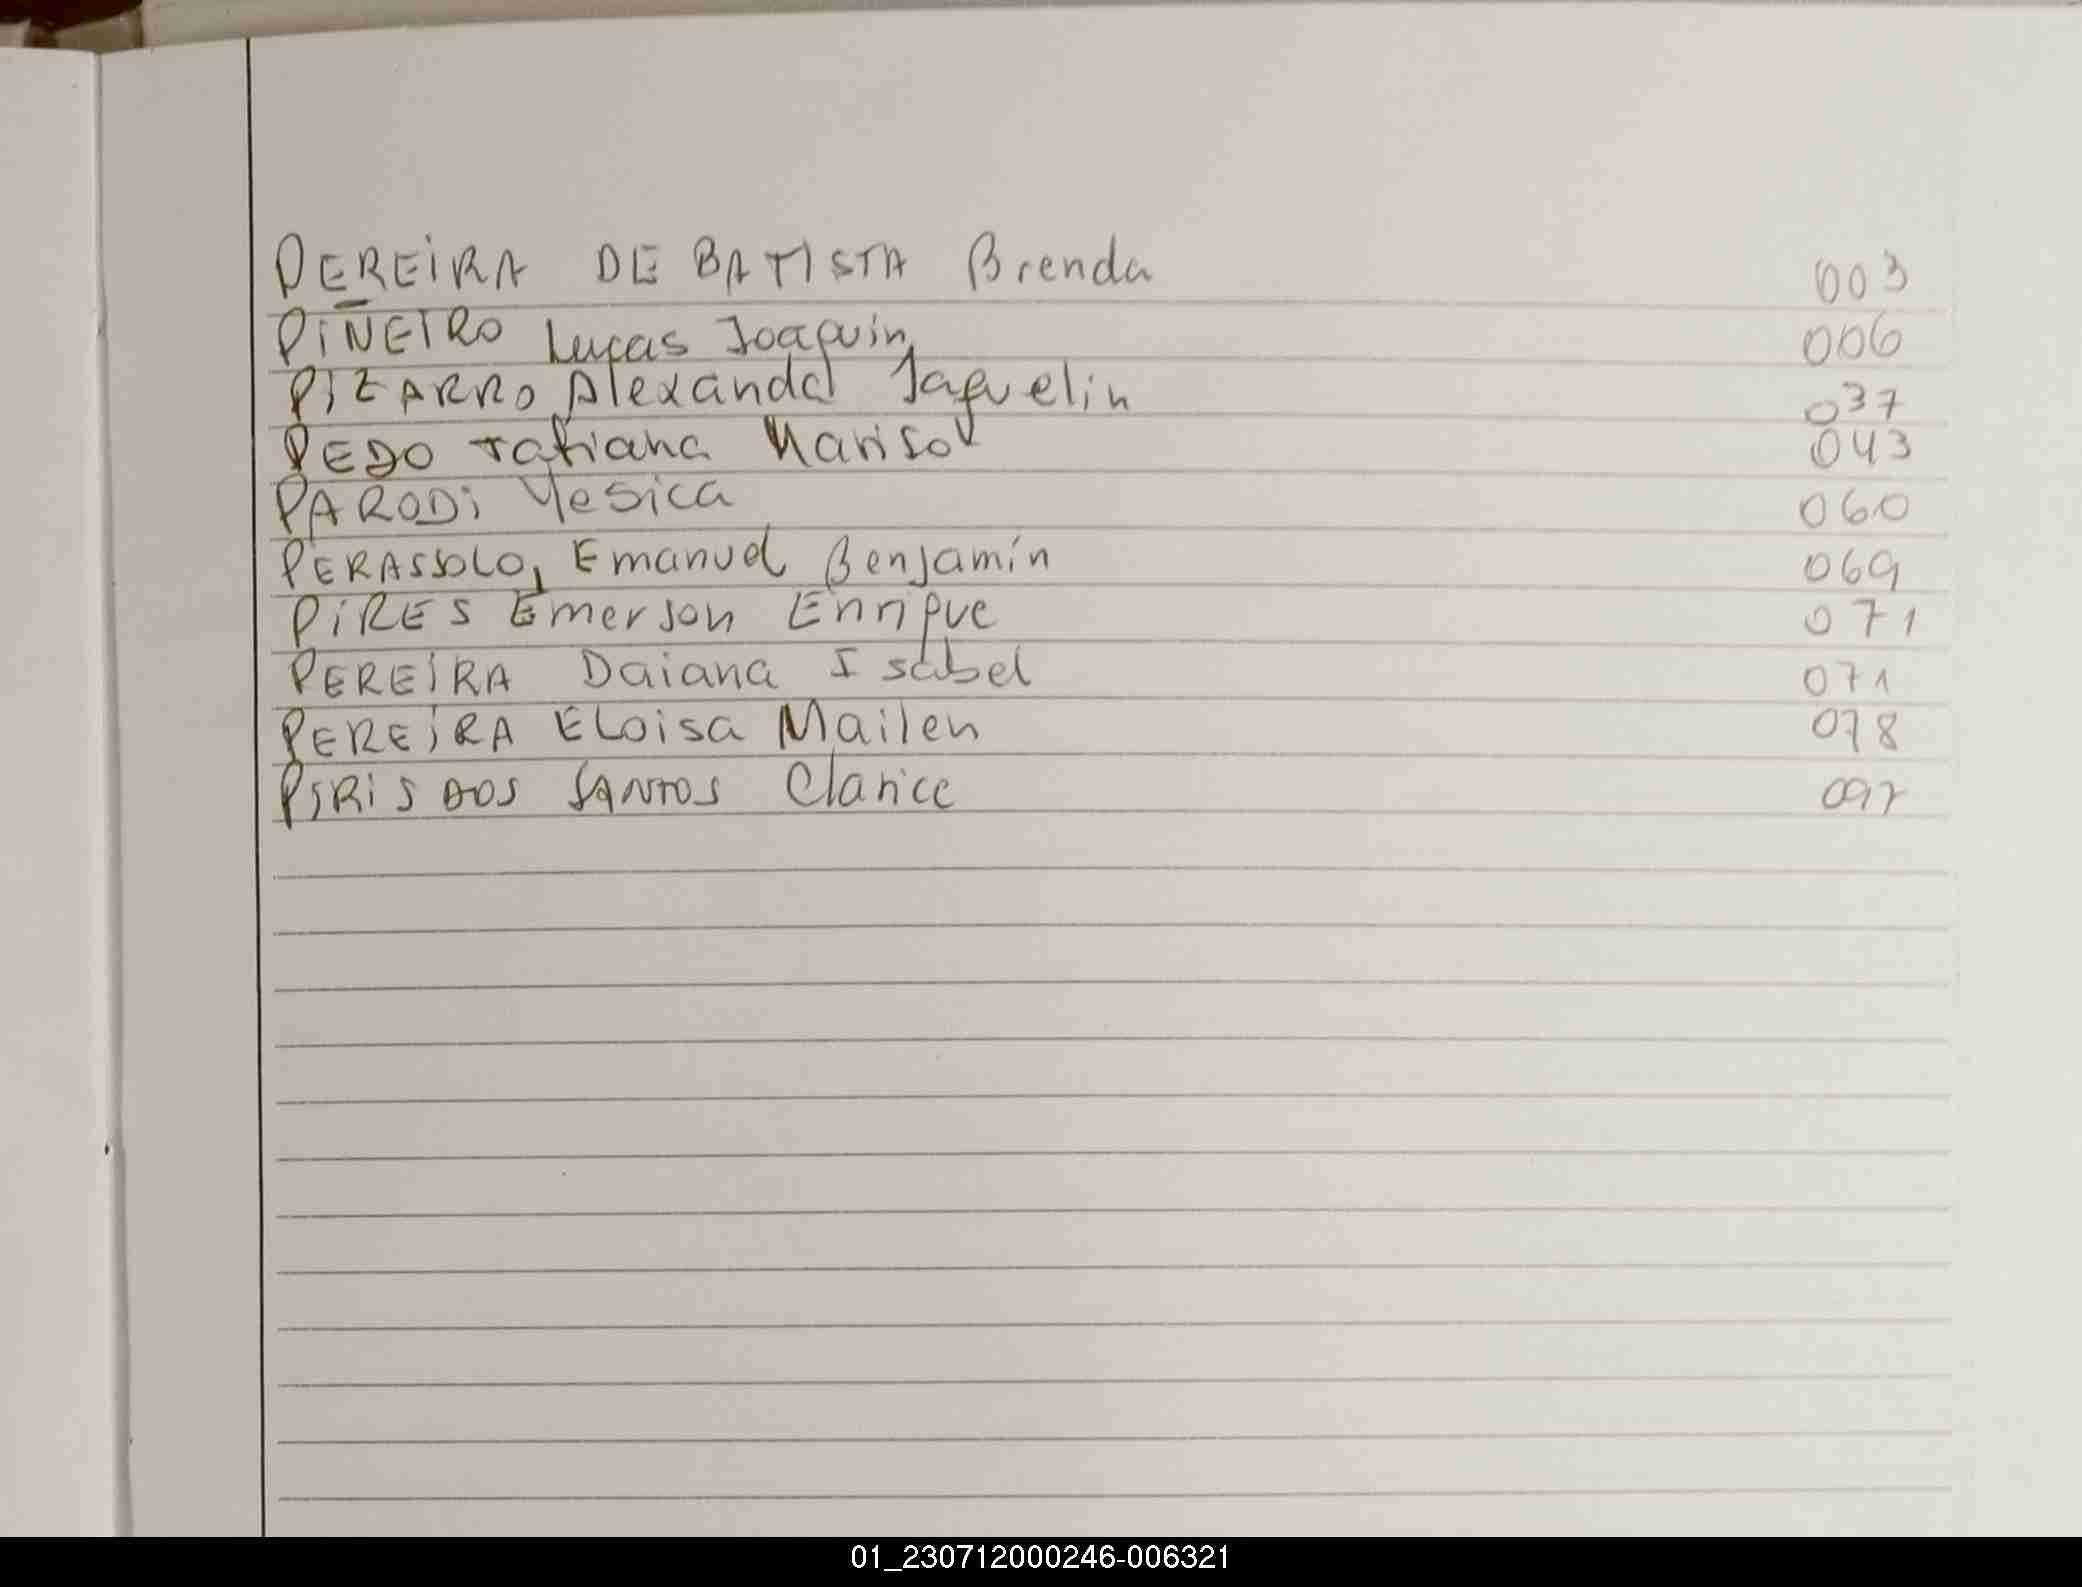 PEREIRA DE BATISTA Brenda 003
PIÑEIRO Lucas Joaquin 006
PIZARRO Alexandra Jaquelin 037
PEDO Tatiana Marisol 043
PARODI Yesica 060
PERASSOLO, Emanuel Benjamín 069
PIRES Emerson Enrique 071
PEREIRA Daiana Isabel 071
PEREIRA Eloisa Mailen 078
PIRIS DOS SANTOS Clarice 097
01_230712000246-006321